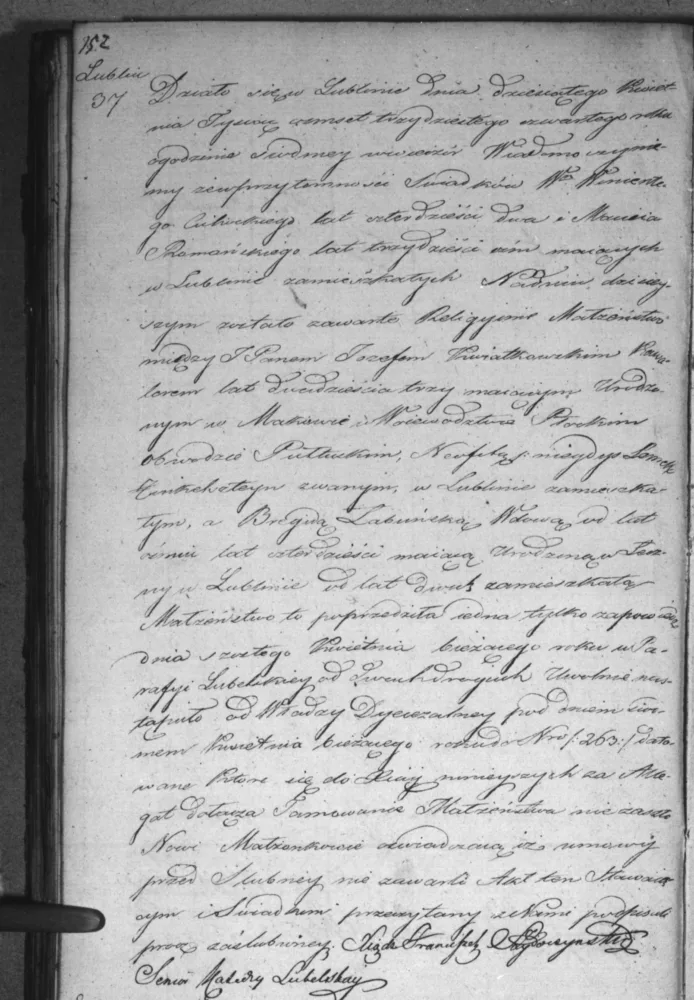 152
Lublin
37
Działo się w Lublinie dnia dziesiątego Kwiet-
nia Tysiąc osmset trzydziestego czwartego roku
o godzinie siodmey wieczór Wiadomo czynie-
my że w przytomności Świadków W. Wincente-
go lat czterdzieści dwa i Macieia
Romańskiego lat trzydzieści ośm maiących
w Lublinie zamieszkałych Na dniu dzisiey-
szym zostało zawarte Religiynie Małżeństwo
między J Panem Jozefem Kwiatkowskim Kawa-
lerem lat dwadzieścia trzy maiącym Urodzo-
nym w Makowie Woiewodztwie Płockim
obwodzie Pułtuskim, Neofitą /: niegdys
zwanym, w Lublinie zamieszka-
łym, a Brygidą Łabuńską Wdową od lat
ośmiu lat czterdzieści maiącą Urodzoną w
w Lublinie od lat dwuch zamieszkałą
Małżeństwo to poprzedziła iedna tylko zapowiedź
dnia szostego Kwietnia bieżącego roku w Pa-
rafyi Lubelskiey od dwuch drugich Uwolnienie nas-
tąpiło od Władzy Dyecezalney pod dniem
Kwietnia bieżącego roku do Nro /: 263 :/ dato-
wane Które się do Xiąg ninieyszych za Alle-
gat dołącza Tamowanie Małżeństwa nie zaszło
Nowi Małżonkowie oświadczaią iż umowy
przed Slubney nie zawarli Akt ten Stawaią-
cym i Świadkom przeczytany z Niemi podpisali
prócz zaślubioney. Xiądz Franciszek
Senior Katedry Lubelskiey